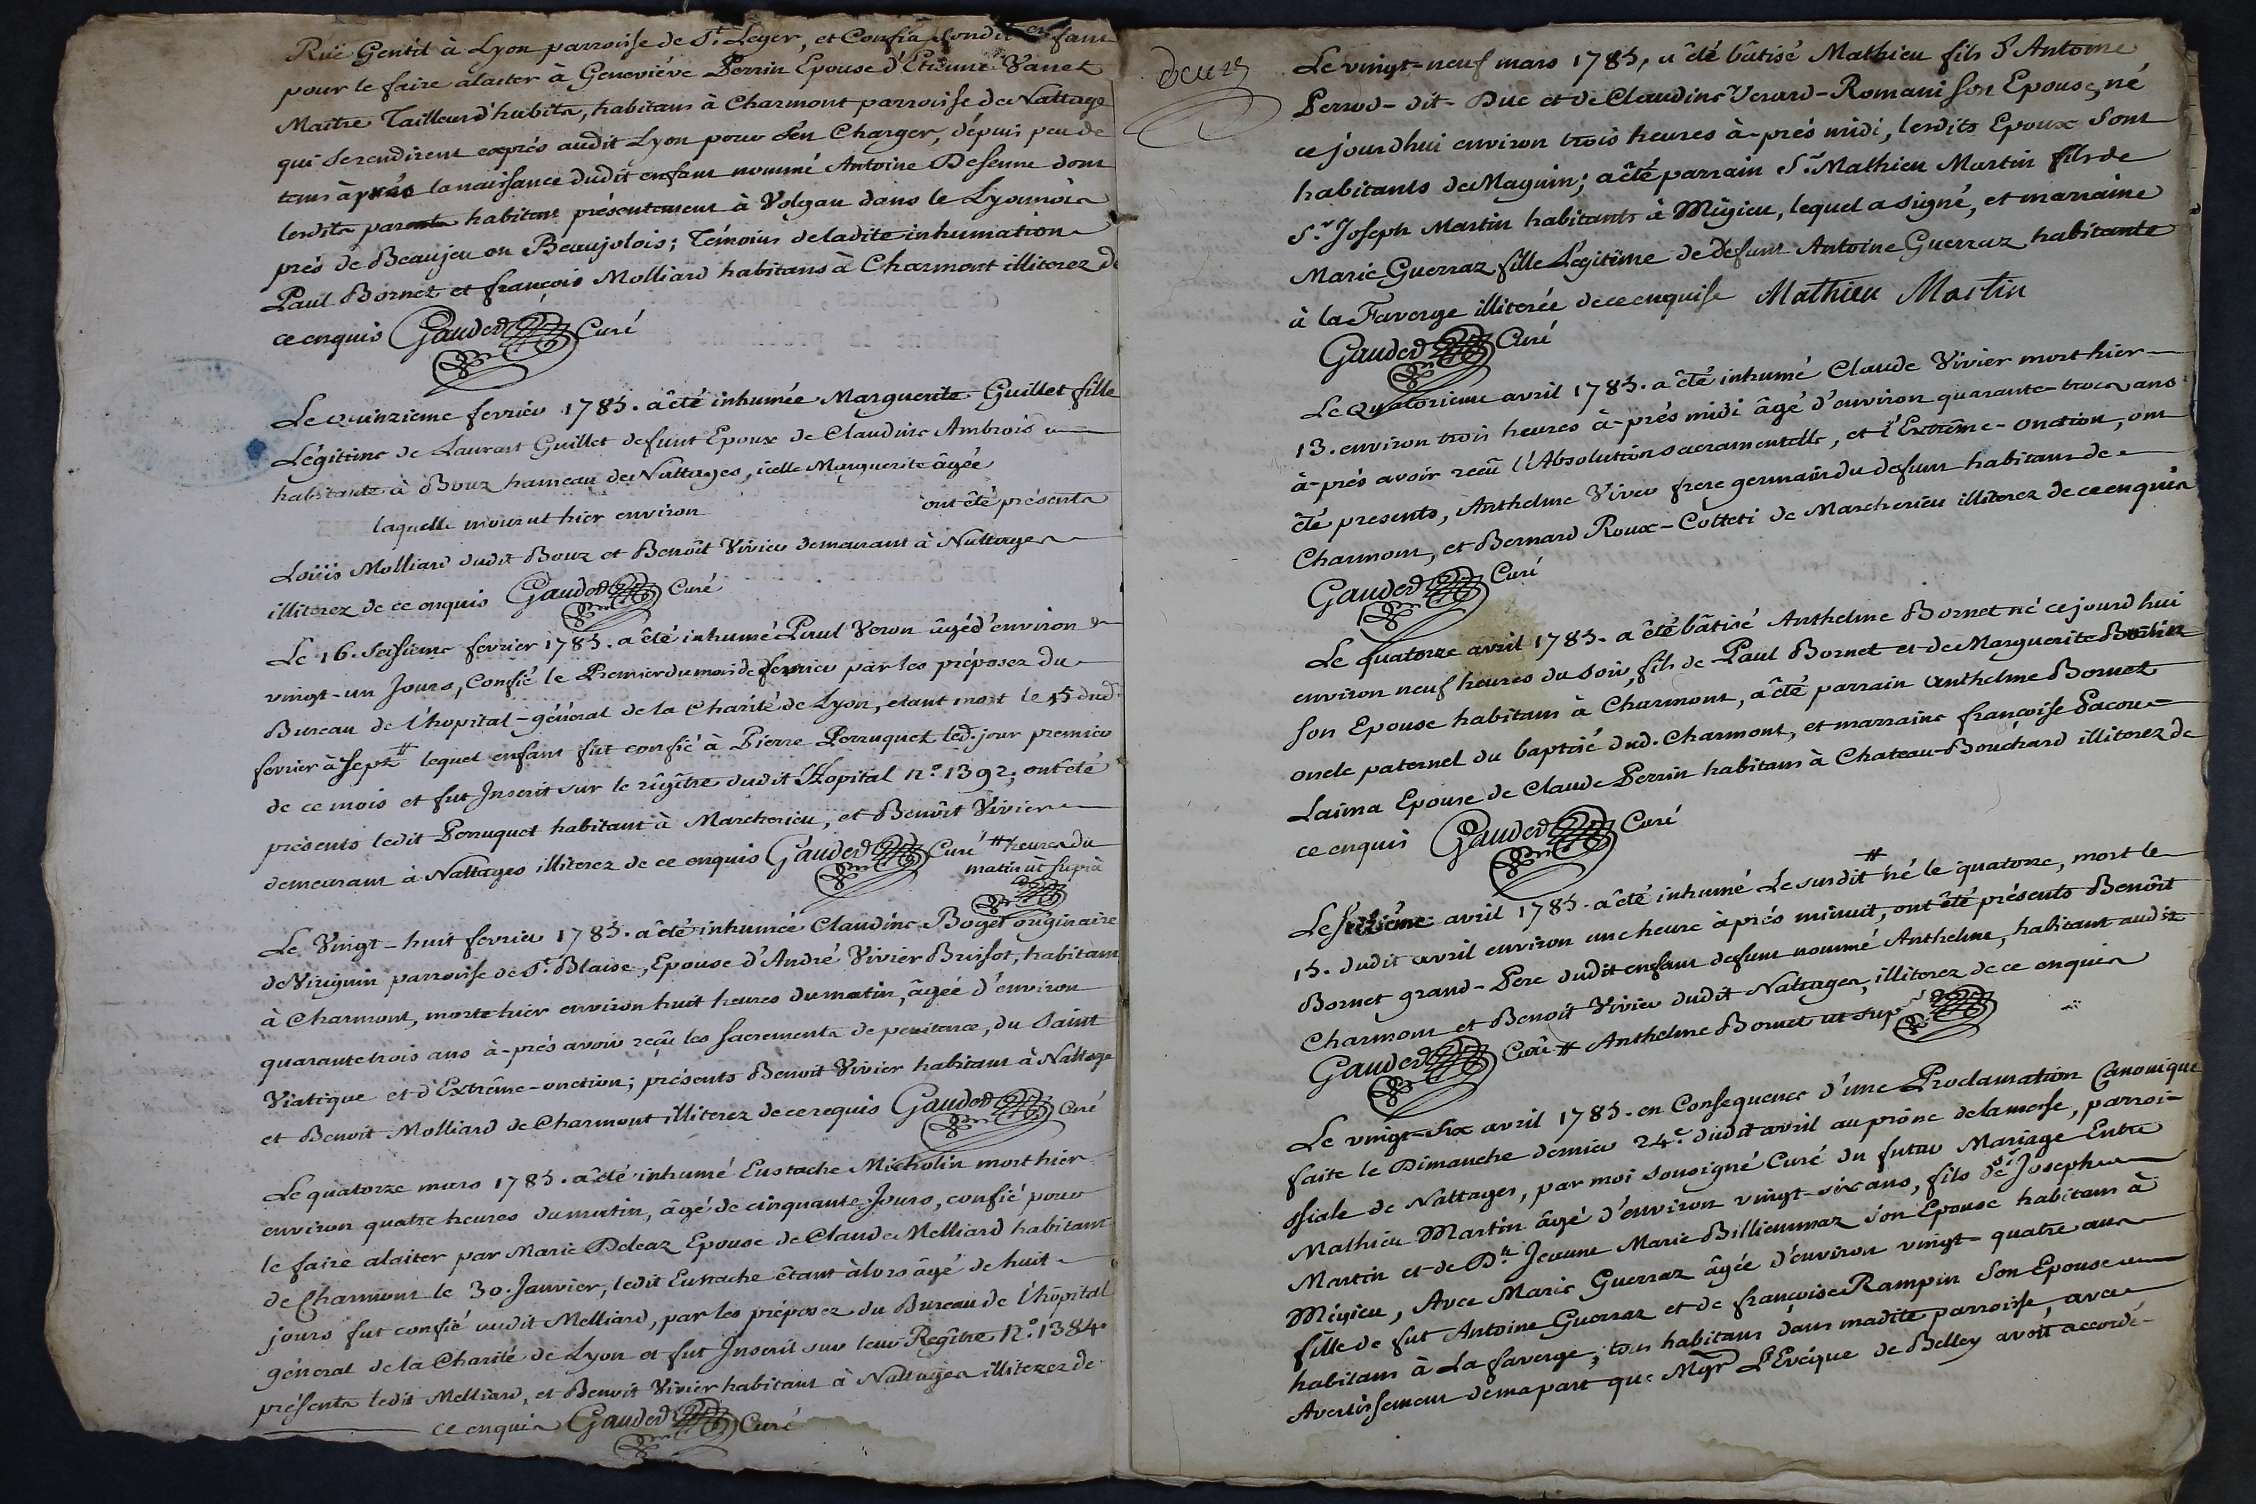 Ruë Gentil à Lyon parroisse de St. Leger, et Confia sondit enfant
pour le faire alaiter à Geneviéve Perrin Epouse d'Etienne Vanet
Maitre Tailleur d'habits, habitans à Charmont parroisse de Nattage
qui se rendirent exprés audit Lyon pour s'en Charger, dépuis peu de
tems àprés la naissance dudit enfant nommé Antoine Desenne dont
lesdits parents habitent présentement à Volgau dans le Lyonnois
prés de Beaujeu ou Beaujolois; Témoins de ladite inhumation
Paul Bornet et françois Molliard habitans à Charmont illiterez de
ce enquis Gauderd Curé
Le Quinzieme fevrier 1785. a été inhumée Marguerite Guillet fille
Légitime de Laurant Guillet defunt Epoux de Claudine Ambrois
habitante à Bouz hameau de Nattages, icelle Marguerite âgée
laquelle mourut hier environ ont été présents
Loüis Molliard dudit Bouz et Benoît Vivier demeurant à Nattages
illiterez de ce enquis Gauderd Curé
Le 16. Seisieme fevrier 1785. a été inhumé Paul Veron âgé d'environ
vingt-un Jours, Confié le Premier du mois de fevrier par les préposez du
Bureau de l'hopital-général de la Charité de Lyon, etant mort le 15 dud.
fevrier à Sept # lequel enfant fut confié à Pierre Perruquet led. jour premier
de ce mois et fut Inscrit sur le régitre dudit Hopital N.o 1392; ont été
présents ledit Perruquet habitant à Marcherieu, et Benoît Vivier
demeurant à Nattages illiterez de ce enquis Gauderd Curé # heures du
matin ut suprà
Le Vingt-huit fevrier 1785. a été inhumée Claudine Boget originaire
de Virignin parroisse de St. Blaise, Epouse d'André Vivier Brissot, habitant
à Charmont, morte hier environ huit heures du matin, âgée d'environ
quarante trois ans à-prés avoir reçû les Sacrements de penitence, du Saint
Viatique et d'Extrême-onction; présents Benoit Vivier habitant à Nattage
et Benoit Molliard de Charmont illiterez de ce requis Gauderd Curé
Le quatorze mars 1785. a été inhumé Eustache Micholin mort hier
environ quatre heures du matin, âgé de cinquante Jours, confié pour
le faire alaiter par Marie Deleaz Epouse de Claude Melliard habitant
de Charmont le 30. Janvier, ledit Eustache étant àlors âgé de huit
jours fut confié audit Melliard, par les préposez du Bureau de l'hôpital
géneral de la Charité de Lyon et fut Inscrit sur leur Regître N.o 1384.
présents ledit Melliard, et Benoit Vivier habitant à Nattages illiterez de
ce enquis Gauderd Curé
deux
Le vingt-neuf mars 1785, a été bâtisé Mathieu fils d'Antoine
Perrod-dit-Duc et de Claudine Verard-Romain son Epouse, né
ce jourdhui environ trois heures à-prés midi, lesdits Epoux sont
habitants de Magnin; a été parrain Sr. Mathieu Martin fils de
Sr. Joseph Martin habitants à Mígieu, lequel a signé, et marraine
Marie Guerraz fille Legitime de défunt Antoine Guerraz habitante
à la Faverge illiterée de ce enquise Mathieu Martin
Gauderd Curé
Le Quatorieme avril 1785. a été inhumé Claude Vivier mort hier
13. environ trois heures à-prés midi âgé d'environ quarante-trois ans
à-prés avoir reçû l'Absolution sacramentelle, et l'Extrême-onction, ont
été presents, Anthelme Vivier frere germain du defunt habitant de
Charmont, et Bernard Roux-Colteti de Marcherieu illiterez de ce enquis
Gauderd Curé
Le quatorze avril 1785. a été bâtisé Anthelme Bornet né ce jourd'hui
environ neuf heures du soir, fils de Paul Bornet et de Marguerite
son Epouse habitans à Charmont, a été parrain Anthelme Bornet
oncle paternel du baptisé dud. Charmont, et marraine françoise Pacou-
Laima Epouse de Claude Perrin habitans à Chateau-Bouchard illiterez de
ce enquis Gauderd Curé
Le seizième avril 1785. a été inhumé Le susdit # né le quatorze, mort le
15. dudit avril environ une heure àprés minuit, ont été présents Benoît
Bornet grand-Pere dudit enfant defunt nommé Anthelme, habitant audit
Charmont et Benoit Vivier dudit Nattages, illiterez de ce enquis
Gauderd Curé # Anthelme Bornet ut sup
Le vingt-six avril 1785. en Consequence d'une Proclamation Canonique
faite le Dimanche dernier 24e. dudit avril au prône de la messe, parroi-
ssiale de Nattages, par moi sousigné Curé du futur Mariage Entre
Mathieu Martin âgé d'environ vingt-six ans, fils de Sr. Joseph
Martin et de Dlle Jeanne Marie Billiemmaz son Epouse habitans à
Mégieu, Avec Marie Guerraz âgée d'environ vingt-quatre ans
fille de fut Antoine Guerraz et de françoise Rampin son Epouse
habitans à La faverge, tous habitans dans madite parroisse, avec
Avertissement de ma part que Mgr L'Evêque de Belley avoit accordé-